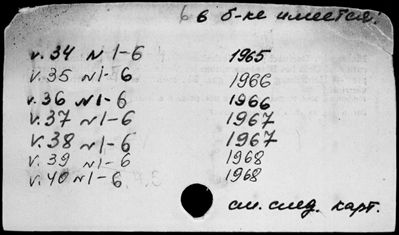 в б-ке имеется:
v. 34 N 1-6 1965
v. 35 N 1-6 1966
v. 36 N 1-6 1966
v. 37 N 1-6 1967
v. 38 N 1-6 1967
v. 39 N 1-6 1968
v. 40 N 1-6 1968
см. след. карт.